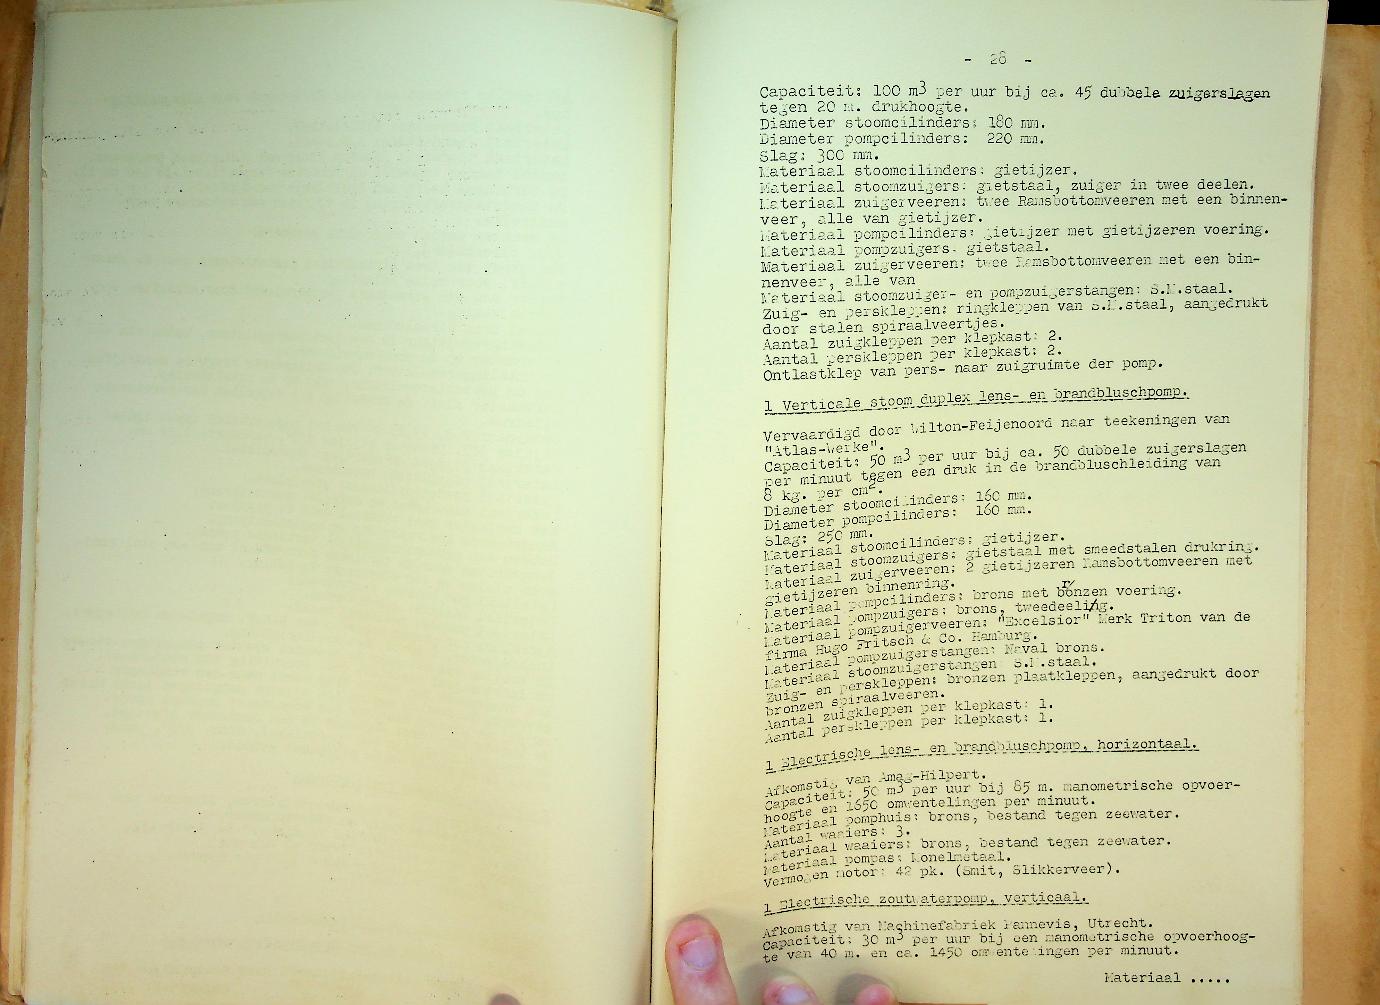 - 28 -
Capaciteit: 100 m3 per uur bij ca. 45 dubbele zuigerslagen
tegen 20 m. drukhoogte.
Diameter stoomcilinders: 180 mm.
Diameter pompcilinders: 220 mm.
Slag: 300 mm.
Materiaal stoomcilinders: gietijzer.
Materiaal stoomzuigers: gietstaal, zuiger in twee deelen.
Materiaal zuigerveeren: twee Ramsbottomveeren met een binnen-
veer, alle van gietijzer.
Materiaal pompcilinders: gietijzer met gietijzeren voering.
Materiaal pompzuigers: gietstaal.
Materiaal zuigerveeren: twee Ramsbottomveeren met een bin-
nenveer, alle van
Materiaal stoomzuiger- en pompzuigerstangen: S.M.staal.
Zuig- en perskleppen: ringkleppen van S.M.staal, aangedrukt
door stalen spiraalveertjes.
Aantal zuigkleppen per klepkast: 2.
Aantal perskleppen per klepkast: 2.
Ontlastklep van pers- naar zuigruimte der pomp.
1 Verticale stoom duplex lens- en brandbluschpomp.
Vervaardigd door Wilton-Feijenoord naar teekeningen van
"Atlas-Werke".
Capaciteit: 50 m3 per uur bij ca. 50 dubbele zuigerslagen
per minuut tegen een druk in de brandbluschleiding van
8 kg. per cm2.
Diameter stoomcilinders: 160 mm.
Diameter pompcilinders: 160 mm.
Slag: 250 mm.
Materiaal stoomcilinders: gietijzer.
Materiaal stoomzuigers: gietstaal met smeedstalen drukring.
Materiaal zuigerveeren: 2 gietijzeren Ramsbottomveeren met
gietijzeren binnenring.
Materiaal pompcilinders: brons met bronzen voering.
Materiaal pompzuigers: brons, tweedeelig.
Materiaal pompzuigerveeren: "Excelsior" Merk Triton van de
firma Hugo Fritsch & Co. Hamburg.
Materiaal pompzuigerstangen: Naval brons.
Materiaal stoomzuigerstangen S.M.staal.
Zuig- en perskleppen: bronzen plaatkleppen, aangedrukt door
bronzen spiraalveeren.
Aantal zuigkleppen per klepkast: 1.
Aantal perskleppen per klepkast: 1.
1 Electrische lens- en brandbluschpomp, horizontaal.
Afkomstig van Amag-Hilpert.
Capaciteit: 50 m3 per uur bij 85 m. manometrische opvoer-
hoogte en 1650 omwentelingen per minuut.
Materiaal pomphuis: brons, bestand tegen zeewater.
Aantal waaiers: 3.
Materiaal waaiers: brons, bestand tegen zeewater.
Materiaal pompas: Monelmetaal.
Vermogen motor: 42 pk. (Smit, Slikkerveer).
1 Electrische zoutwaterpomp, verticaal.
Afkomstig van Machinefabriek Pannevis, Utrecht.
Capaciteit: 30 m3 per uur bij een manometrische opvoerhoog-
te van 40 m. en ca. 1450 omwentelingen per minuut.
Materiaal .....